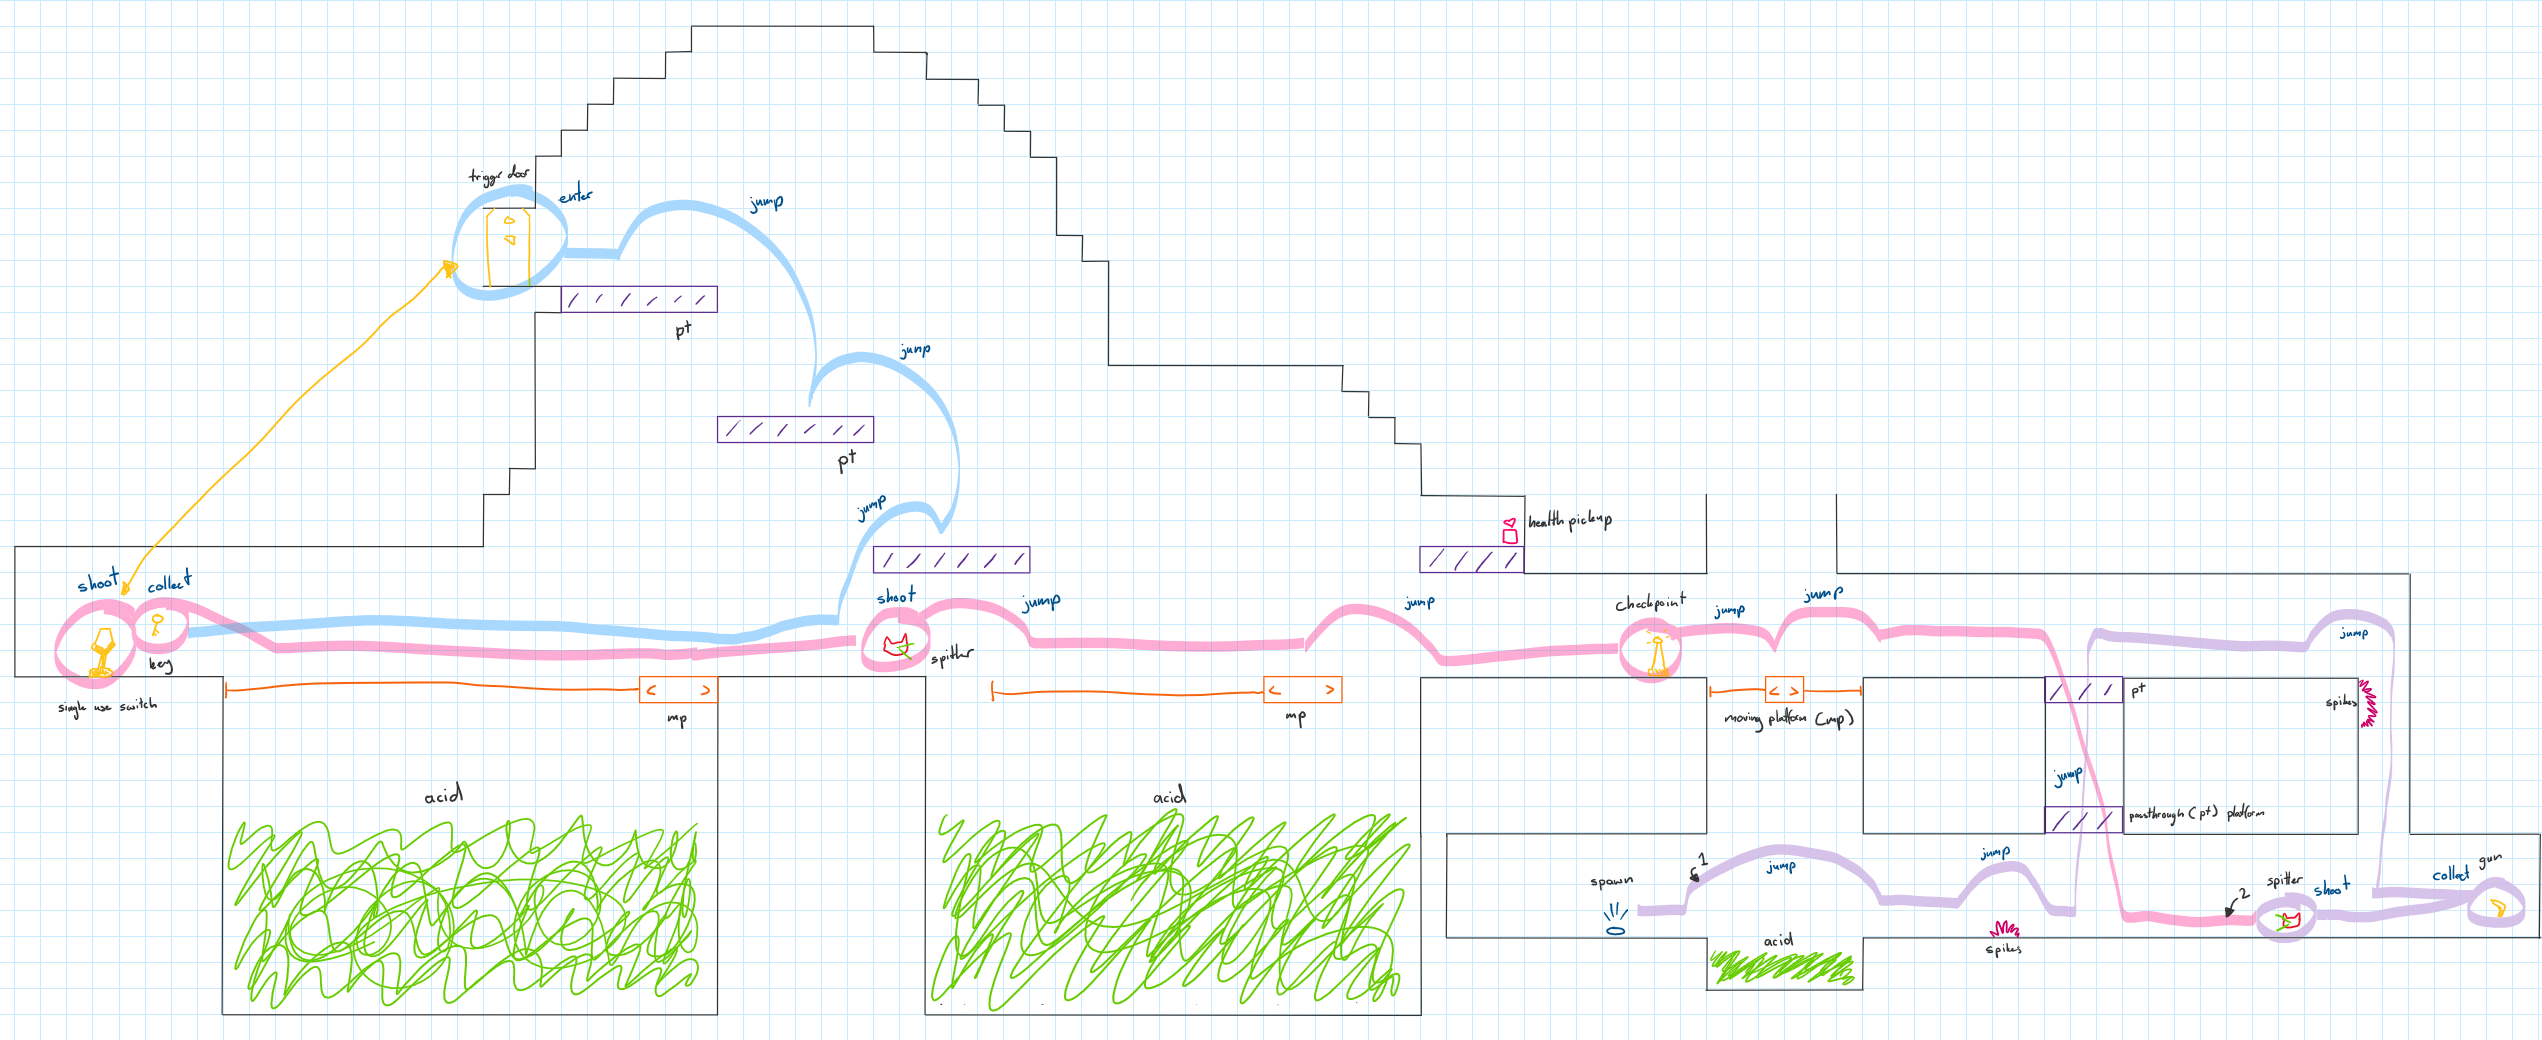 trigger door
enter
jump
pt
jump
pt
jump
health pickup
shoot
collect
key
single use switch
shoot
spitter
jump
jump
checkpoint
jump
jump
jump
mp
mp
moving platform (mp)
pt
spikes
acid
acid
jump
passthrough (pt) platform
spawn
1
jump
jump
spitter
shoot
collect
gun
2
acid
spikes